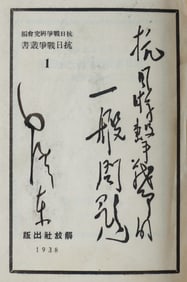 抗日戰爭研究會編
抗日戰爭叢書
1
抗日游擊戰爭的
一般問題
毛澤東
解放社出版
1938